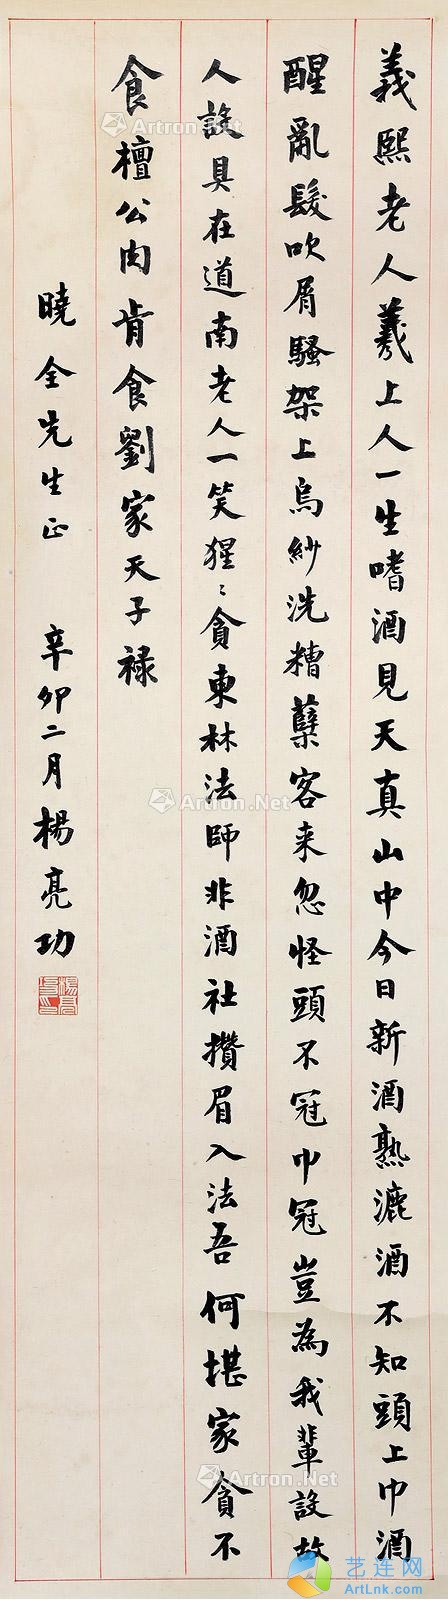 義熙老人羲上人一生嗜酒見天真山中今日新酒熟漉酒不知頭上巾酒
醒亂髮吹屑騷架上烏紗洗糟糵客来忽怪頭不冠巾冠豈為我輩設故
人設具在道南老人一笑猩〻貪東林法師非酒社攢眉入法吾何堪家貪不
食檀公肉肯食劉家天子禄
曉全先生正 辛卯二月楊亮功
Artron.Net
Artron.Net
Artron.Net
Artron.Net
艺连网
ArtLnk.com